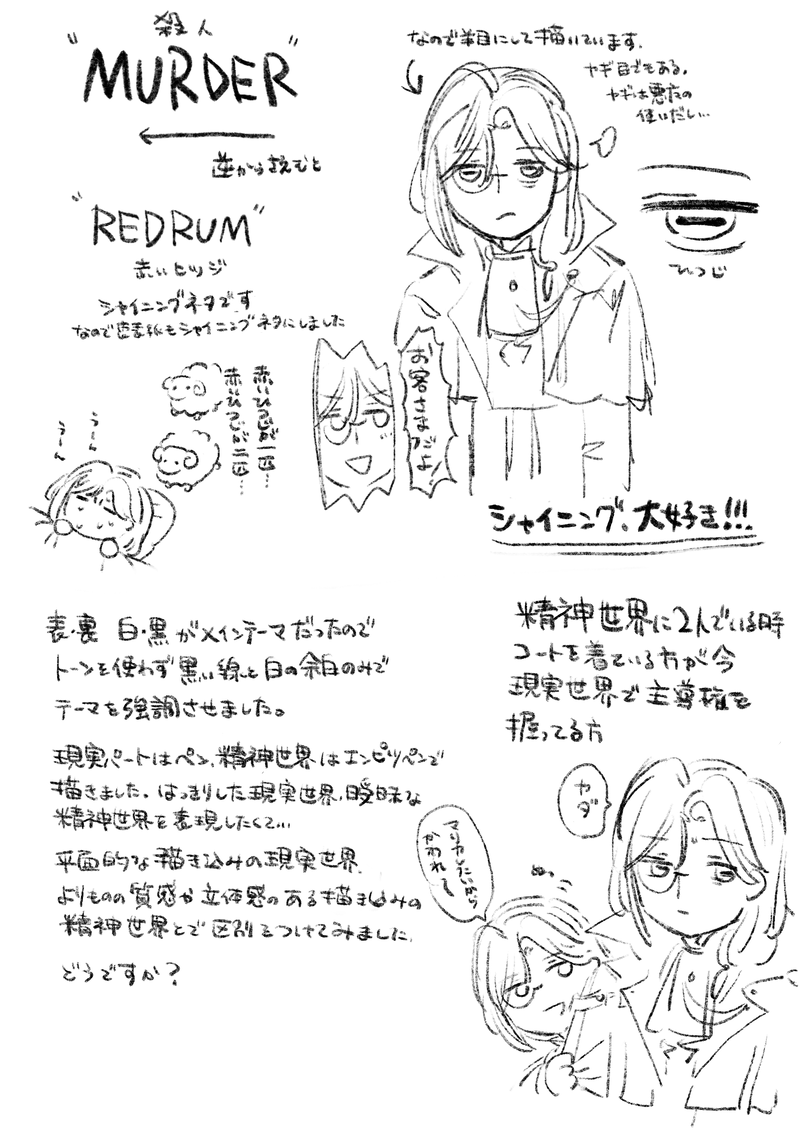 殺人
"MURDER"
逆から読むと
"REDRUM"
赤いヒツジ
シャイニングネタです
なので密表紙もシャイニングネタにしました
なので羊目にして描いています。
ヤギ目でもある。
ヤギは悪魔の
使いだし…
ひつじ
お客さまだよ
赤いひつじが一匹…
赤いひつじが二匹…
うーん
うーん
シャイニング、大好き!!!
表・裏 白・黒がメインテーマだったので
トーンを使わず黒い線と白の余白のみで
テーマを強調させました。
現実パートはペン、精神世界はエンピツペンで
描きました。はっきりした現実世界、曖昧な
精神世界を表現したくて…
平面的な描き込みの現実世界、
よりものの質感や立体感のある描き込みの
精神世界とで区別をつけてみました。
どうですか?
精神世界に2人でいる時
コートを着ている方が今
現実世界で主導権を
握ってる方
ヤダ
マリカしたいから
かわれ〜